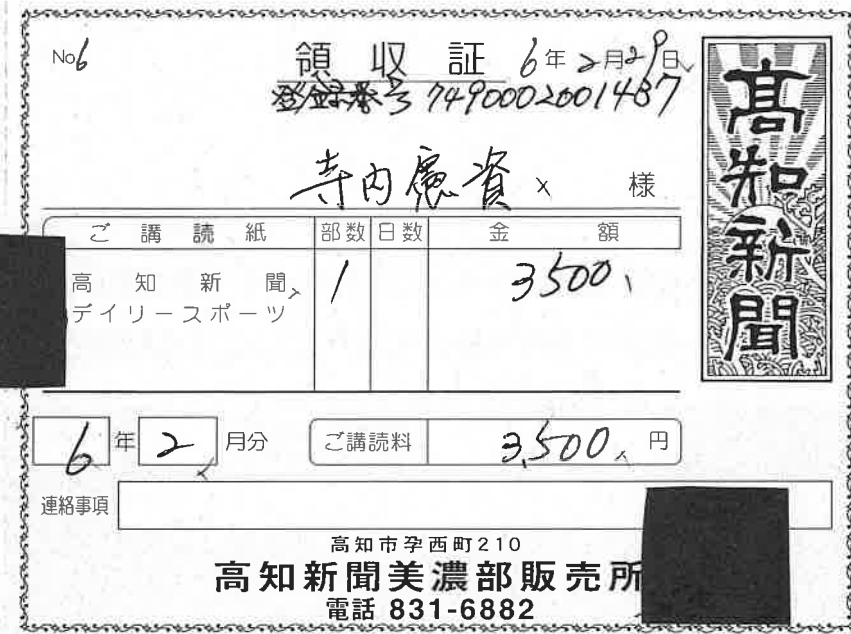 No6
領収証 6年2月29日
登録番号 7490002001487
寺内憲資 様
高知新聞
ご講読紙 部数 日数 金額
高知新聞 1 3500
デイリースポーツ
6年2月分 ご講読料 3,500円
連絡事項
高知市孕西町210
高知新聞美濃部販売所
電話 831-6882